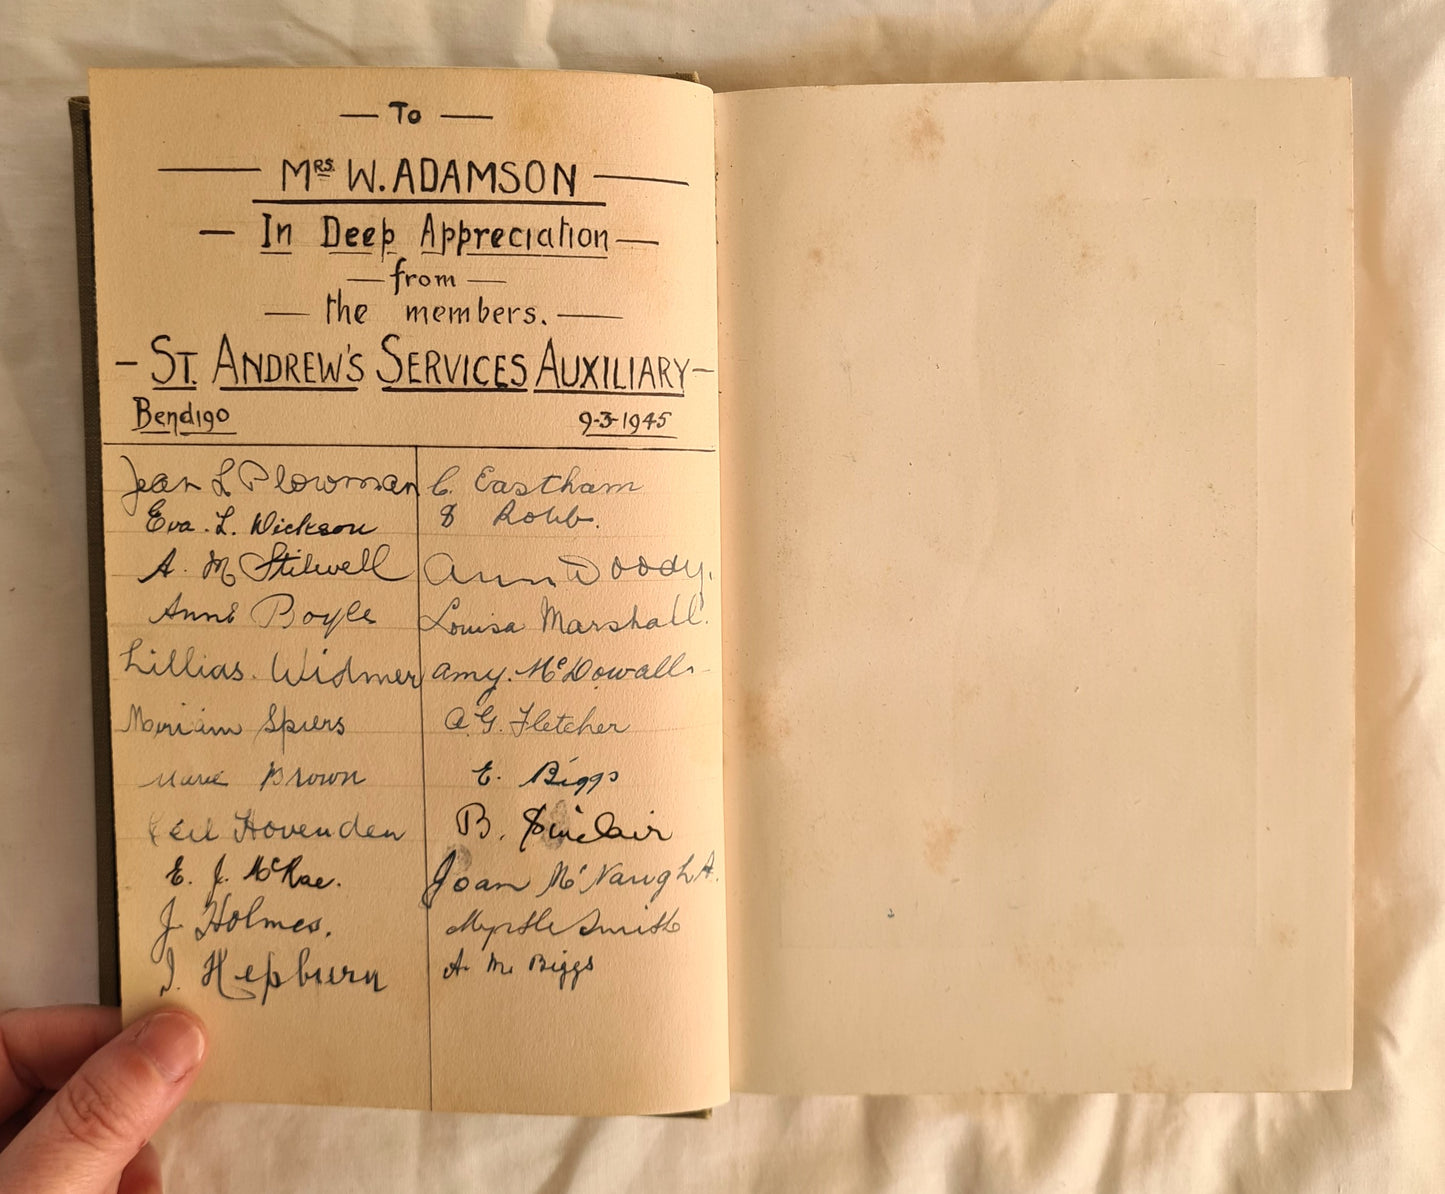 — To —
— Mrs. W. ADAMSON —
— In Deep Appreciation —
— from —
— the members. —
— ST. ANDREW'S SERVICES AUXILIARY —
Bendigo 9-3-1945
Jean L Plowman
Eva. L. Wickson
A. M Stilwell
Anne Boyle
Lillias. Widmer
Miriam Spiers
Marie Brown
Hovenden
E. J. McRae.
J. Holmes.
I. Hepburn
C. Eastham
Robb.
Ann Woody.
Louisa Marshall.
Amy. McDowall.
A. G. Fletcher
E. Biggs
B. Sinclair
Joan McNaught.
Myrtle Smith
A. M. Biggs